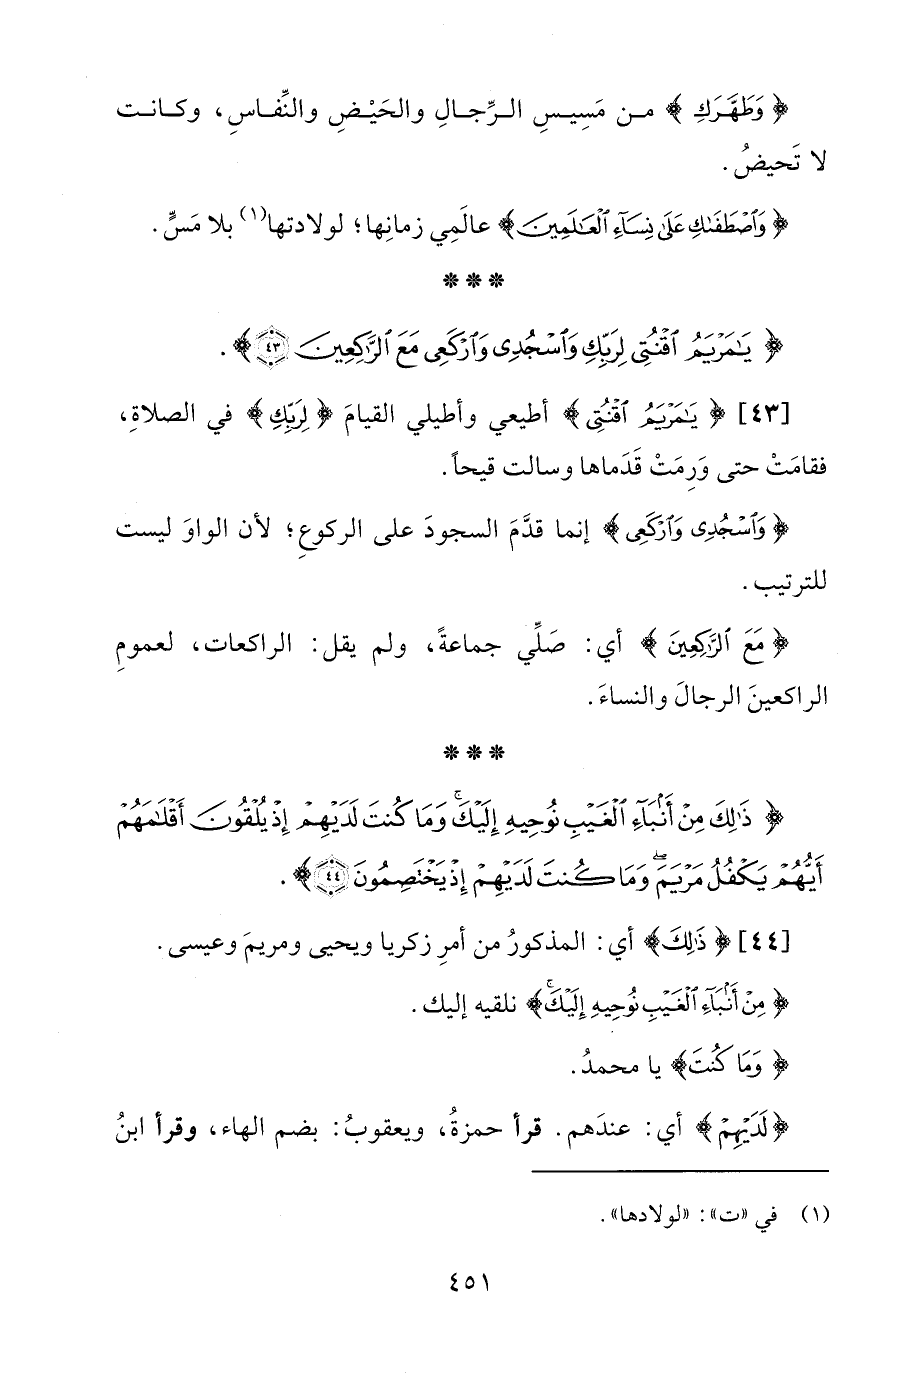 ﴿ وَطَهَّرَكِ ﴾ من مَسِيسِ الرِّجالِ والحَيْضِ والنِّفاسِ، وكانت
لا تَحيضُ.
﴿ وَٱصْطَفَىٰكِ عَلَىٰ نِسَآءِ ٱلْعَٰلَمِينَ ﴾ عالَمِي زمانِها؛ لولادتها(١) بلا مَسٍّ.
***
﴿ يَٰمَرْيَمُ ٱقْنُتِى لِرَبِّكِ وَٱسْجُدِى وَٱرْكَعِى مَعَ ٱلرَّٰكِعِينَ ٤٣ ﴾.
[٤٣] ﴿ يَٰمَرْيَمُ ٱقْنُتِى ﴾ أطيعي وأطيلي القيامَ ﴿ لِرَبِّكِ ﴾ في الصلاةِ،
فقامَتْ حتى وَرِمَتْ قَدَماها وسالت قيحاً.
﴿ وَٱسْجُدِى وَٱرْكَعِى ﴾ إنما قدَّمَ السجودَ على الركوعِ؛ لأن الواوَ ليست
للترتيب.
﴿ مَعَ ٱلرَّٰكِعِينَ ﴾ أي: صَلِّي جماعةً، ولم يقل: الراكعات، لعمومِ
الراكعينَ الرجالَ والنساءَ.
***
﴿ ذَٰلِكَ مِنْ أَنۢبَآءِ ٱلْغَيْبِ نُوحِيهِ إِلَيْكَ ۚ وَمَا كُنتَ لَدَيْهِمْ إِذْ يُلْقُونَ أَقْلَٰمَهُمْ
أَيُّهُمْ يَكْفُلُ مَرْيَمَ ۖ وَمَا كُنتَ لَدَيْهِمْ إِذْ يَخْتَصِمُونَ ٤٤ ﴾.
[٤٤] ﴿ ذَٰلِكَ ﴾ أي: المذكورُ من أمرِ زكريا ويحيى ومريمَ وعيسى.
﴿ مِنْ أَنۢبَآءِ ٱلْغَيْبِ نُوحِيهِ إِلَيْكَ ۚ ﴾ نلقيه إليك.
﴿ وَمَا كُنتَ ﴾ يا محمدُ.
﴿ لَدَيْهِمْ ﴾ أي: عندَهم. قرأ حمزةُ، ويعقوبُ: بضم الهاء، وقرأ ابنُ
(١) في «ت»: «لولادها».
٤٥١